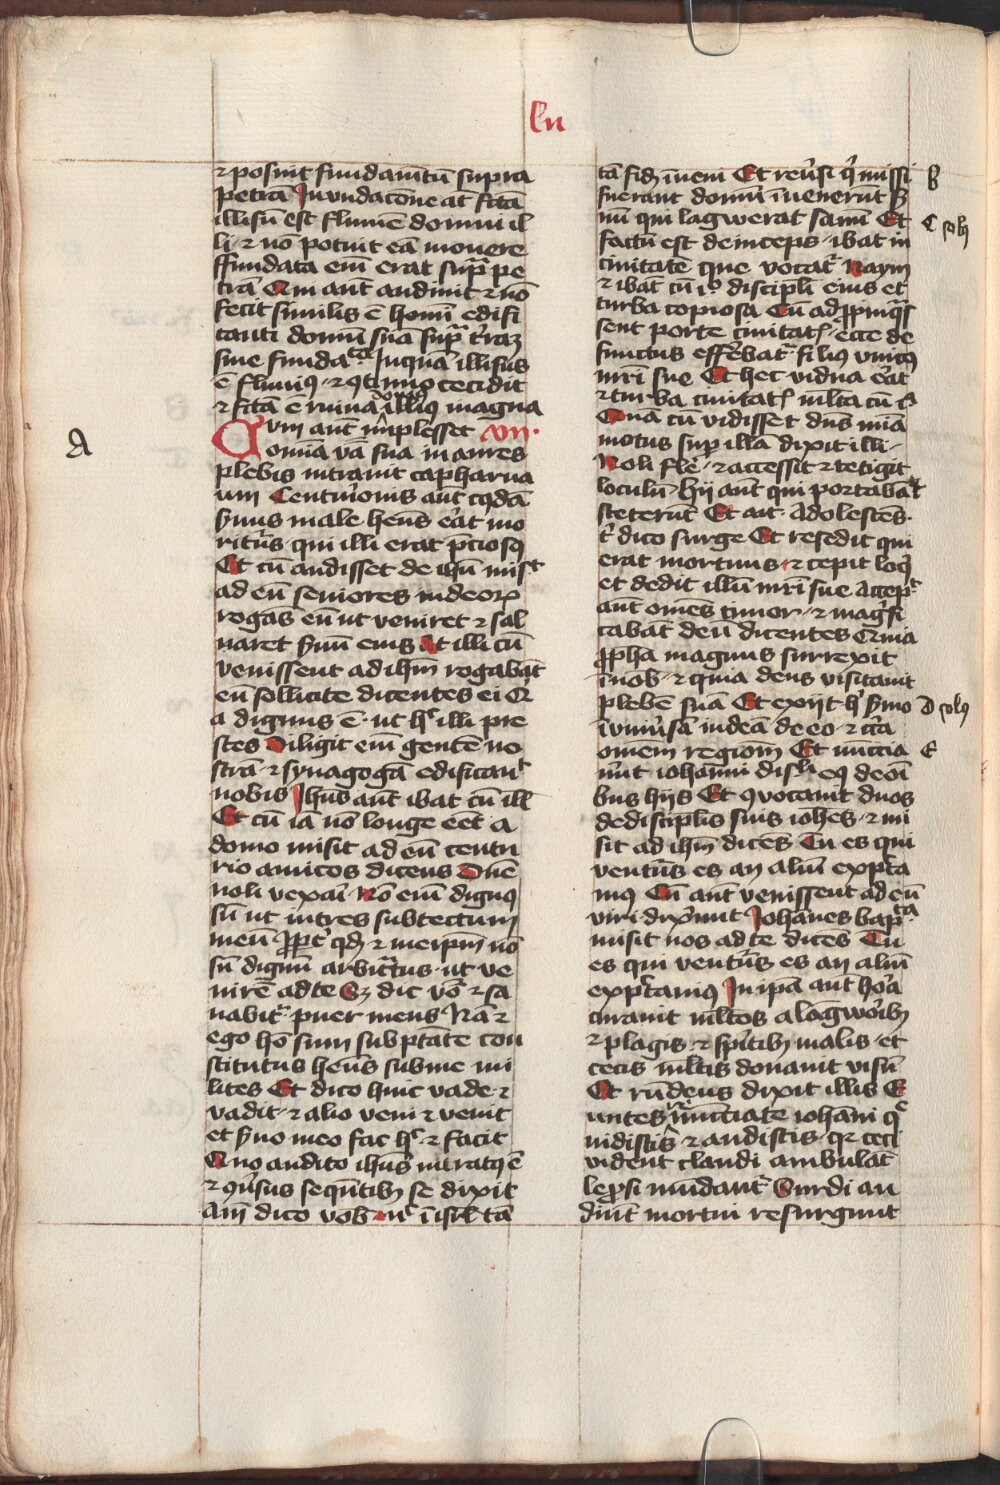 lu
⁊ posuit fundamētū supra
petrā Inundacōne aūt fctā
illisū est flumē domui il
li ⁊ nō potuit eā mouere
ffundata em̄ erat supͣ pe
trā Qui aūt audiuit ⁊ nō
fecit similis ē homī edifi
canti domū suā supͣ t̄raꝫ
sine fundaᵗᵒ Inquā illisus
ē fluuiꝰ ⁊ ꝯtinuo cecidit
⁊ fctā ē ruina domꝰ illiꝰ magna
Cum aūt īmplesset VII
A
omīa v̄ba sua in aures
plebis intrauit capharna
um Centurionis aūt cꝰdā
s̄uus male hēns e̓at mo
riturꝰ qui illi erat p̄ciosꝰ
Et cū audisset de ihū misᵗ
ad eū seniores iudeoꝝ
rogās eū ut veniret ⁊ sal
uaret s̄uū eius At illi cū
venissent ad ihm̄ rogabāt
eū sollicite dicentes ei Qͥ
a dignus ē ut hͨ illi pre
stes Diligit em̄ gentē no
strā ⁊ synagogā edificauᵗ
nobis Ihūs aūt ibat cū ill̄
Et cū iā nō longe eēt a
domo misit ad eū centu
rio amicos dicens Dn̄e
noli vexaī Nō em̄ dignꝰ
sū ut intres sub tectum
meū ꝓpͭ qd̄ ⁊ meipm̄ nō
sū dignū arbitͣtus ut ve
nirē ad te Sꝫ dic v̄bo ⁊ sa
nabitᷣ puer meus Nā ⁊
ego hō sum sub ptāte con
stitutus hēns sub me mi
lites Et dico huic vade ⁊
vadit ⁊ alio veni ⁊ venit
et s̄uo meo fac hͨ ⁊ facit
Quo audito ihūs miratꝰ ē
⁊ ꝯu̓sus sequētibꝫ se dixit
Am̄ dico vob̄ nͨ ī isrl̄ tā
tā fidē īueni Et reu̓si qͥ missi
B
fuerant domū īuenerūt s̄
uū qui langwerat sanū Et
C solꝰ
factū est deinceps ibat in
ciuitatē que vocatᷣ Naym
⁊ ibat cū iº discipl̄i eius et
turba copiosa Cū aūt ꝓpinqͣs
sent porte ciuitatꝭ ecce de
functus efferebatᷣ filius vnicꝰ
mr̄i sue Et hec vidua e̓at
⁊ turba ciuitatꝭ ml̄ta cū
Quā cū vidisset dn̄s mīa
motus supͣ illā dixit illi
Noli flē ⁊ accessit ⁊ tetigit
loculū hij aūt qui portabāt
steterūt Et ait Adolescēs
tͥ dico surge Et resedit qui
erat mortuus ⁊ cepit loqͥ
et dedit illū mr̄i sue Accepͭ
aūt om̄es timor ⁊ magͥfi
cabāt deū dicentes Quia
ꝓpha magnus surrexit
ī nob̄ ⁊ quia deus visitauit
plebē suā Et exijt hͨ s̄mo
D solꝰ
ī vniu̓sā iudeā de eo ⁊ cͥca
omem regiom̄ Et nuncia
E
ru̓t iohāni disˡⁱ eꝰ de oī
bus hijs Et ꝯuocauit duos
de disciplis suis iohēs ⁊ mi
sit ad ihm̄ dicēs Tu es qui
ventūs es an aliū expcta
mꝰ Cū aūt venissent ad eū
viri dixe̓unt Iohānes bapᵗᵃ
misit nos ad te dicēs Tu
es qui ventūs es an aliū
expctamꝰ In ipā aūt hora
curauit ml̄tos a langworibꝫ
⁊ plagis ⁊ spiritibꝫ malis et
cecis ml̄tis donauit visū
Et rn̄dens dixit illis E
untes nunciate iohāni qͤ
vidistis ⁊ audistis qꝛ ceci
vident claudi ambulāt
leprosi mundantᷣ Surdi au
diūt mortui resurgunt